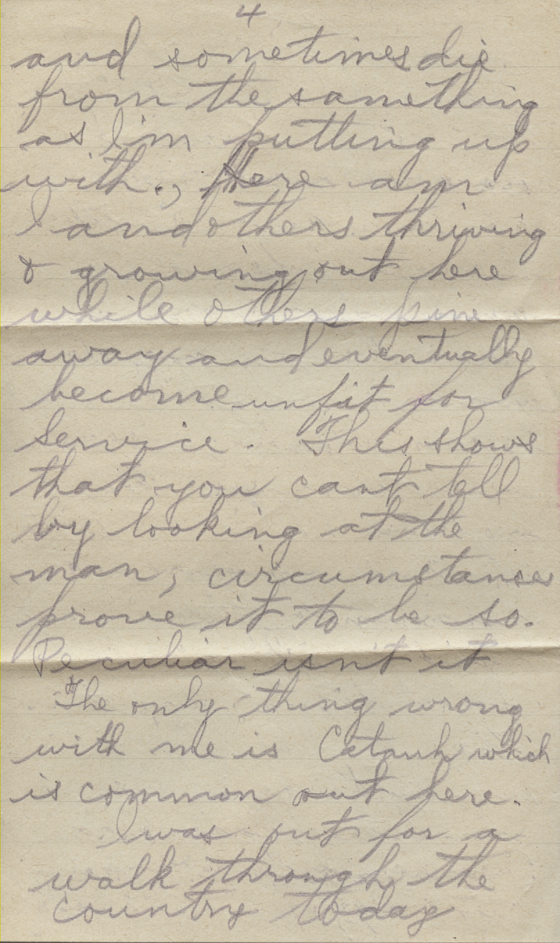 4
and sometimes die
from the same thing
as I'm putting up
with., Here am
I and others thriving
& growing out here
while others pine
away and eventually
become unfit for
Service. This shows
that you cant tell
by looking at the
man, circumstances
prove it to be so.
Peculiar isnt it
The only thing wrong
with me is Catarrh which
is common out here.
I was out for a
walk through the
country today